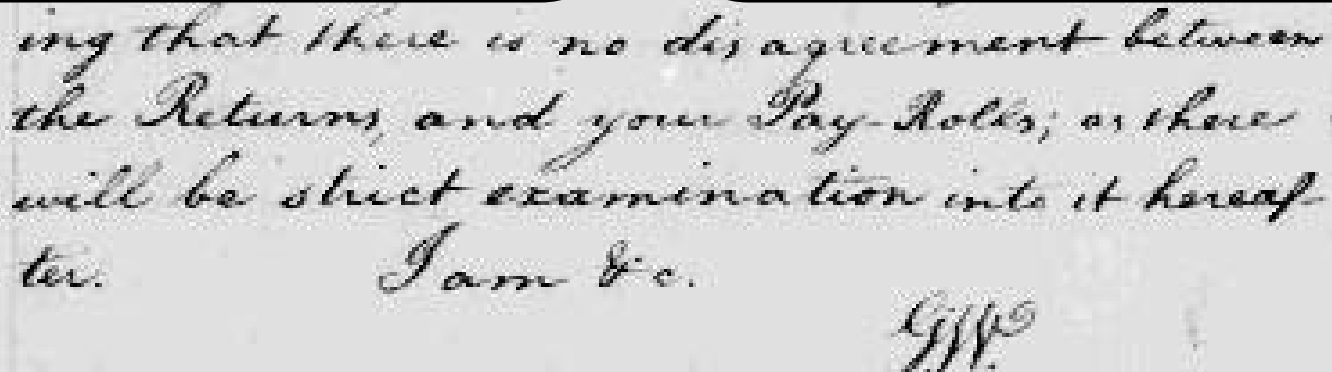 ing that there is no disagreement between
the Returns, and your Pay-Rolls; as there
will be strict examination into it hereaf-
ter. I am &c.
GW.